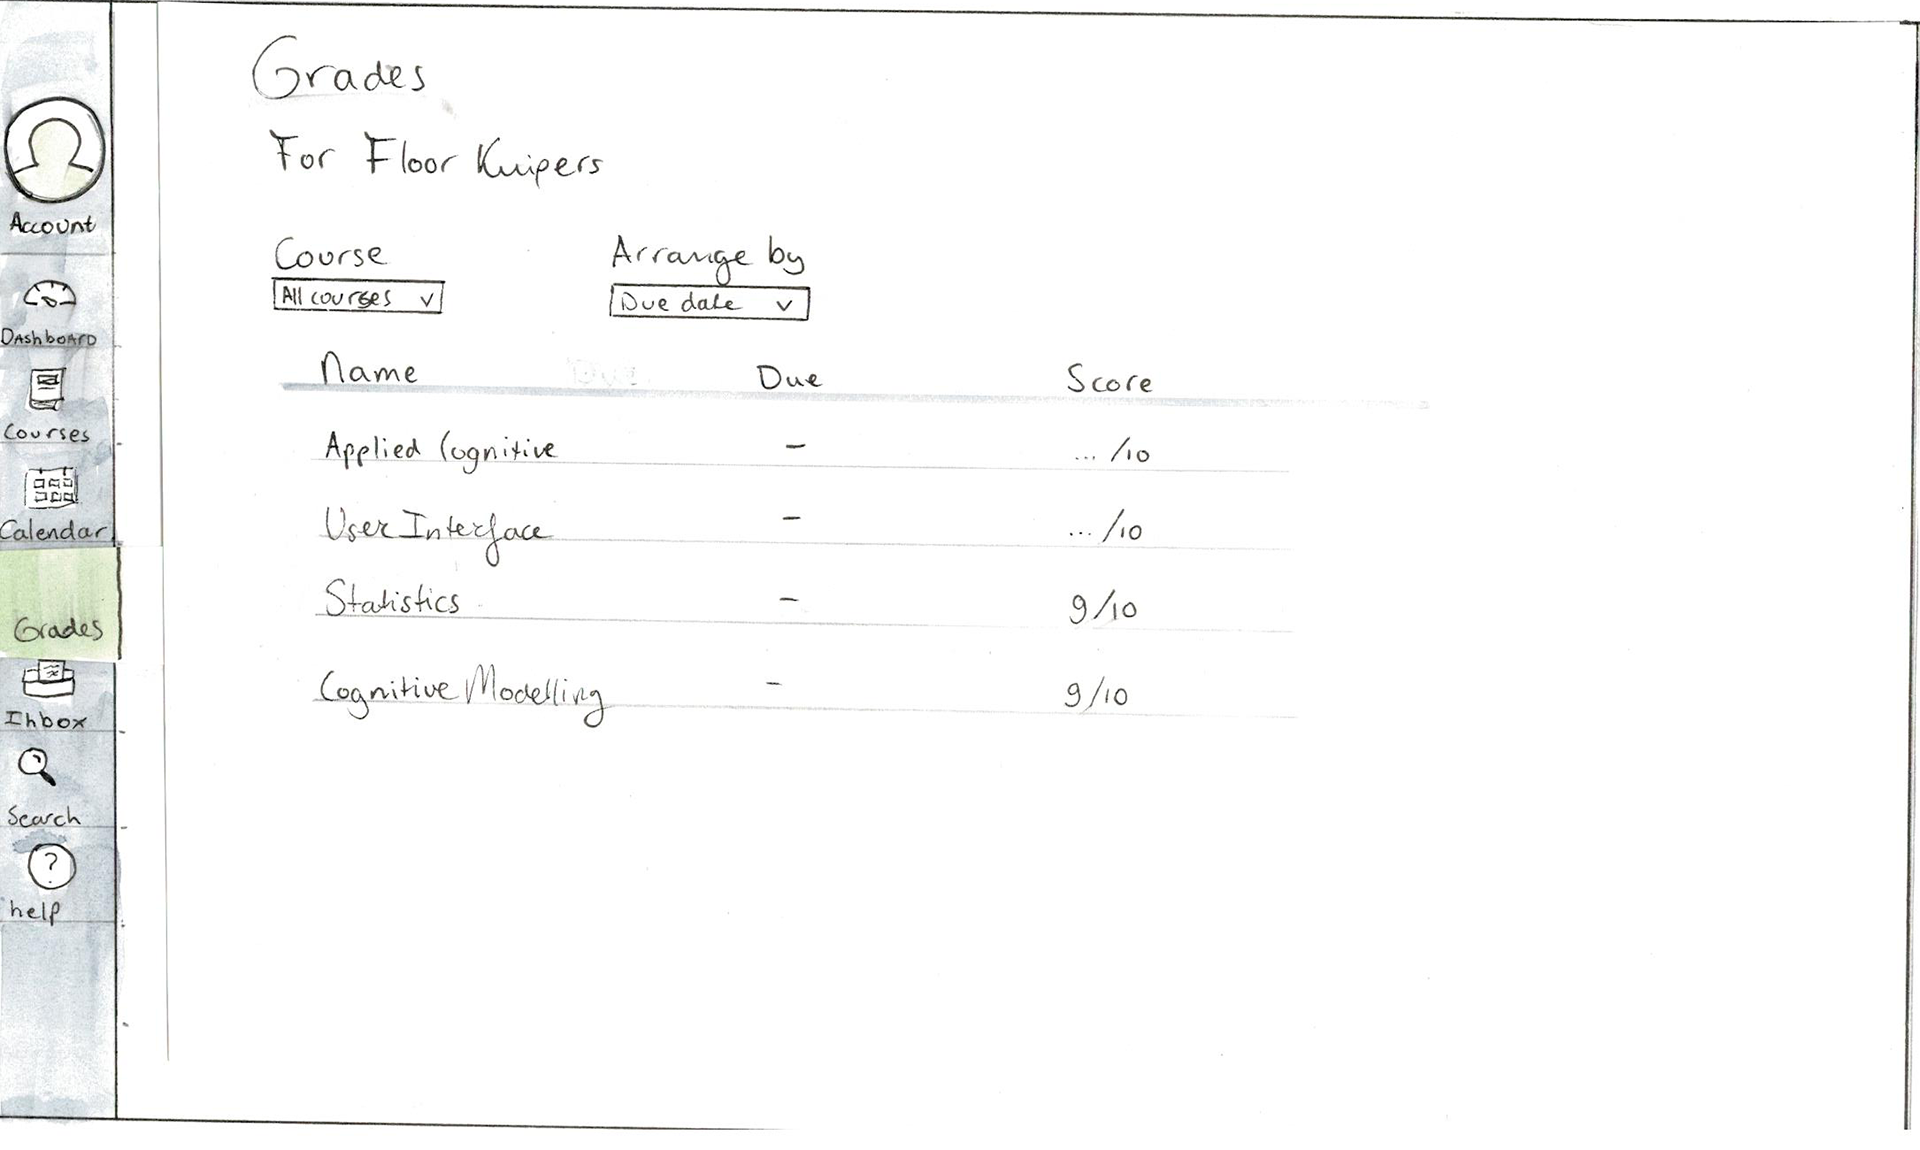 Grades
For Floor Kuipers
Account
Course Arrange by
All courses v Due date v
Dashboard
Name Due Score
Courses
Applied Cognitive - ... /10
Calendar
User Interface - ... /10
Statistics - 9/10
Grades
Cognitive Modelling - 9/10
Inbox
Search
?
help